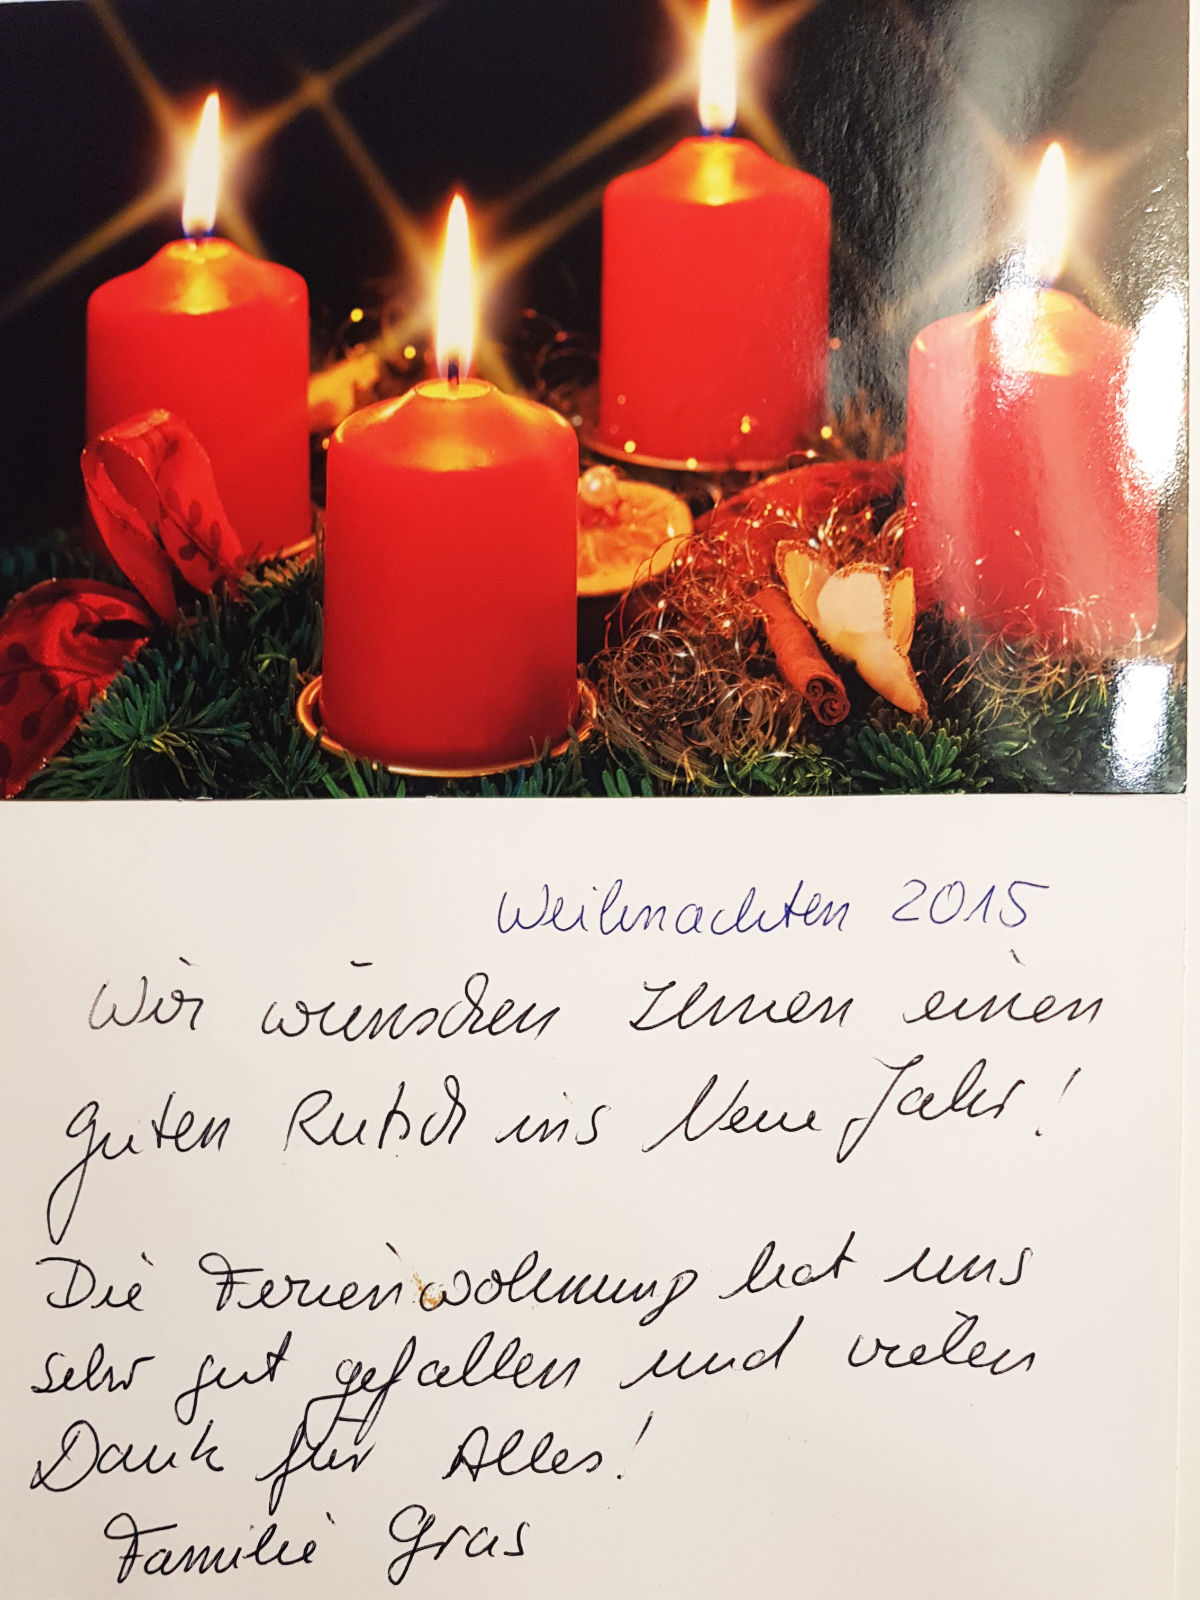 Weihnachten 2015
Wir wünschen Ihnen einen
guten Rutsch ins Neue Jahr!
Die Ferienwohnung hat uns
sehr gut gefallen und vielen
Dank für Alles!
Familie Gras